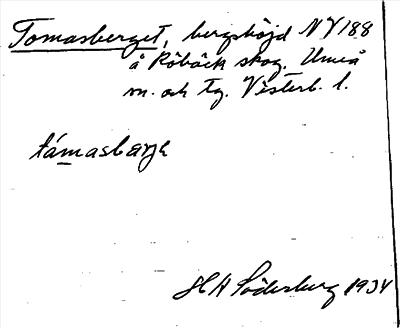 Tomasberget, bergshöjd NV188
å Röbäck skog. Umeå
m. och tg. Västerb. l.
tåmasbärjə
H A Söderberg 1934